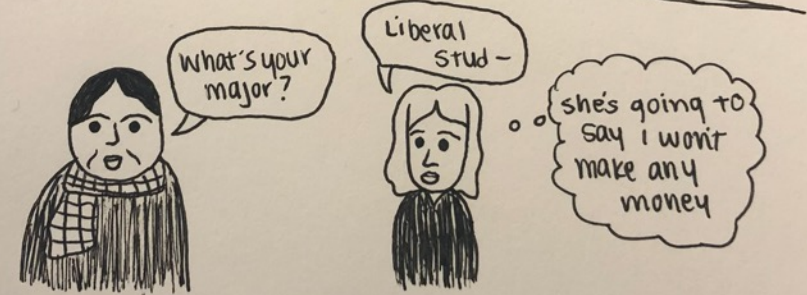 What's your
major?
Liberal
Stud-
she's going to
say I won't
make any
money